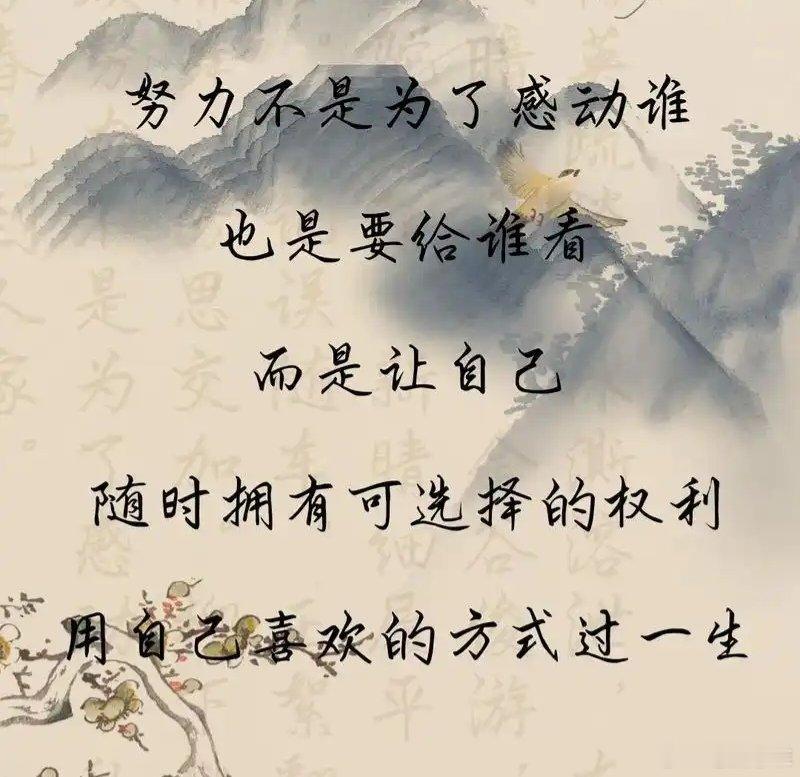 努力不是为了感动谁
也是要给谁看
而是让自己
随时拥有可选择的权利
用自己喜欢的方式过一生